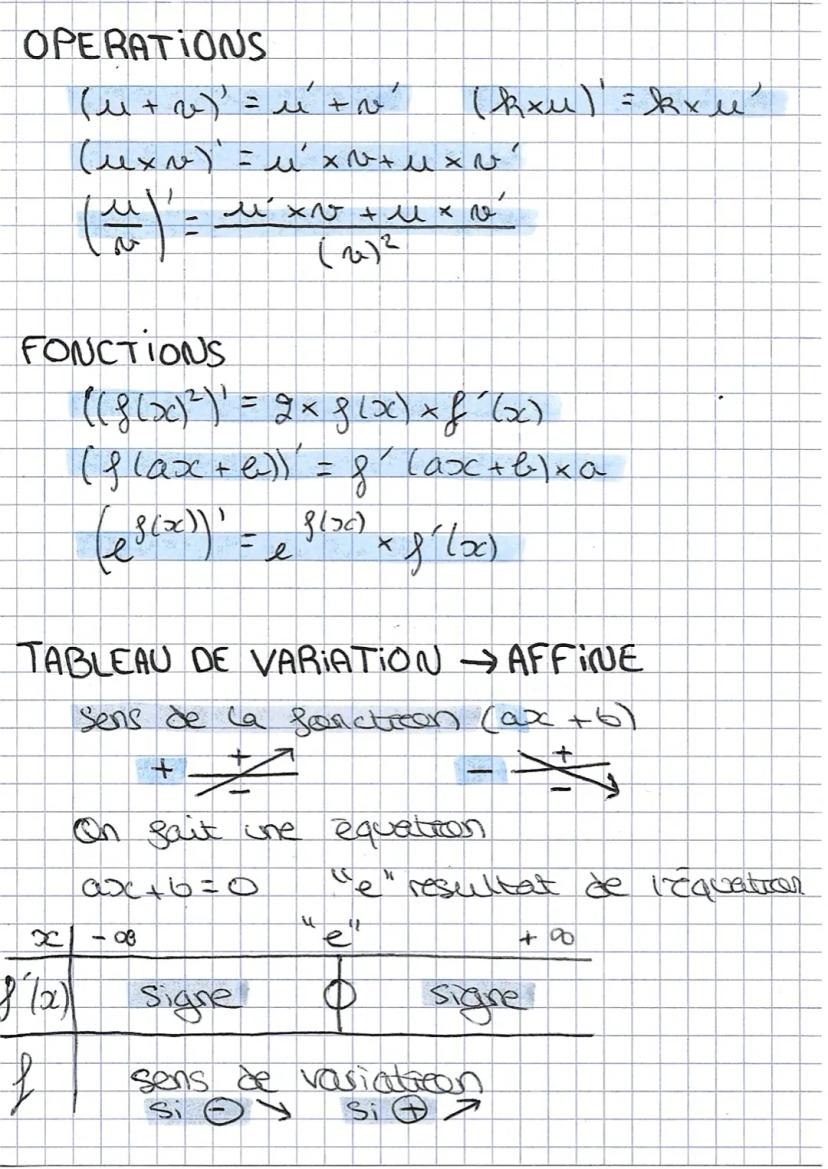 OPERATIONS
(u + v)' = u' + v' (k×u)' = k×u'
(u×v)' = u' × v + u × v'
(u/v)' = (u' ×v + u × v')/(v)²
FONCTIONS
((f(x)²)' = 2× f(x) × f'(x)
(f(ax + b))' = f' (ax + b) × a
(e^f(x))' = e^f(x) × f'(x)
TABLEAU DE VARIATION → AFFINE
sens de la fonction (ax + b)
+ + - - + -
On fait une équation
ax + b = 0 "e" resultat de l'équation
x - ∞ "e" + ∞
f'(x) signe 0 signe
f sens de variation
si ⊖ ↘ si ⊕ ↗